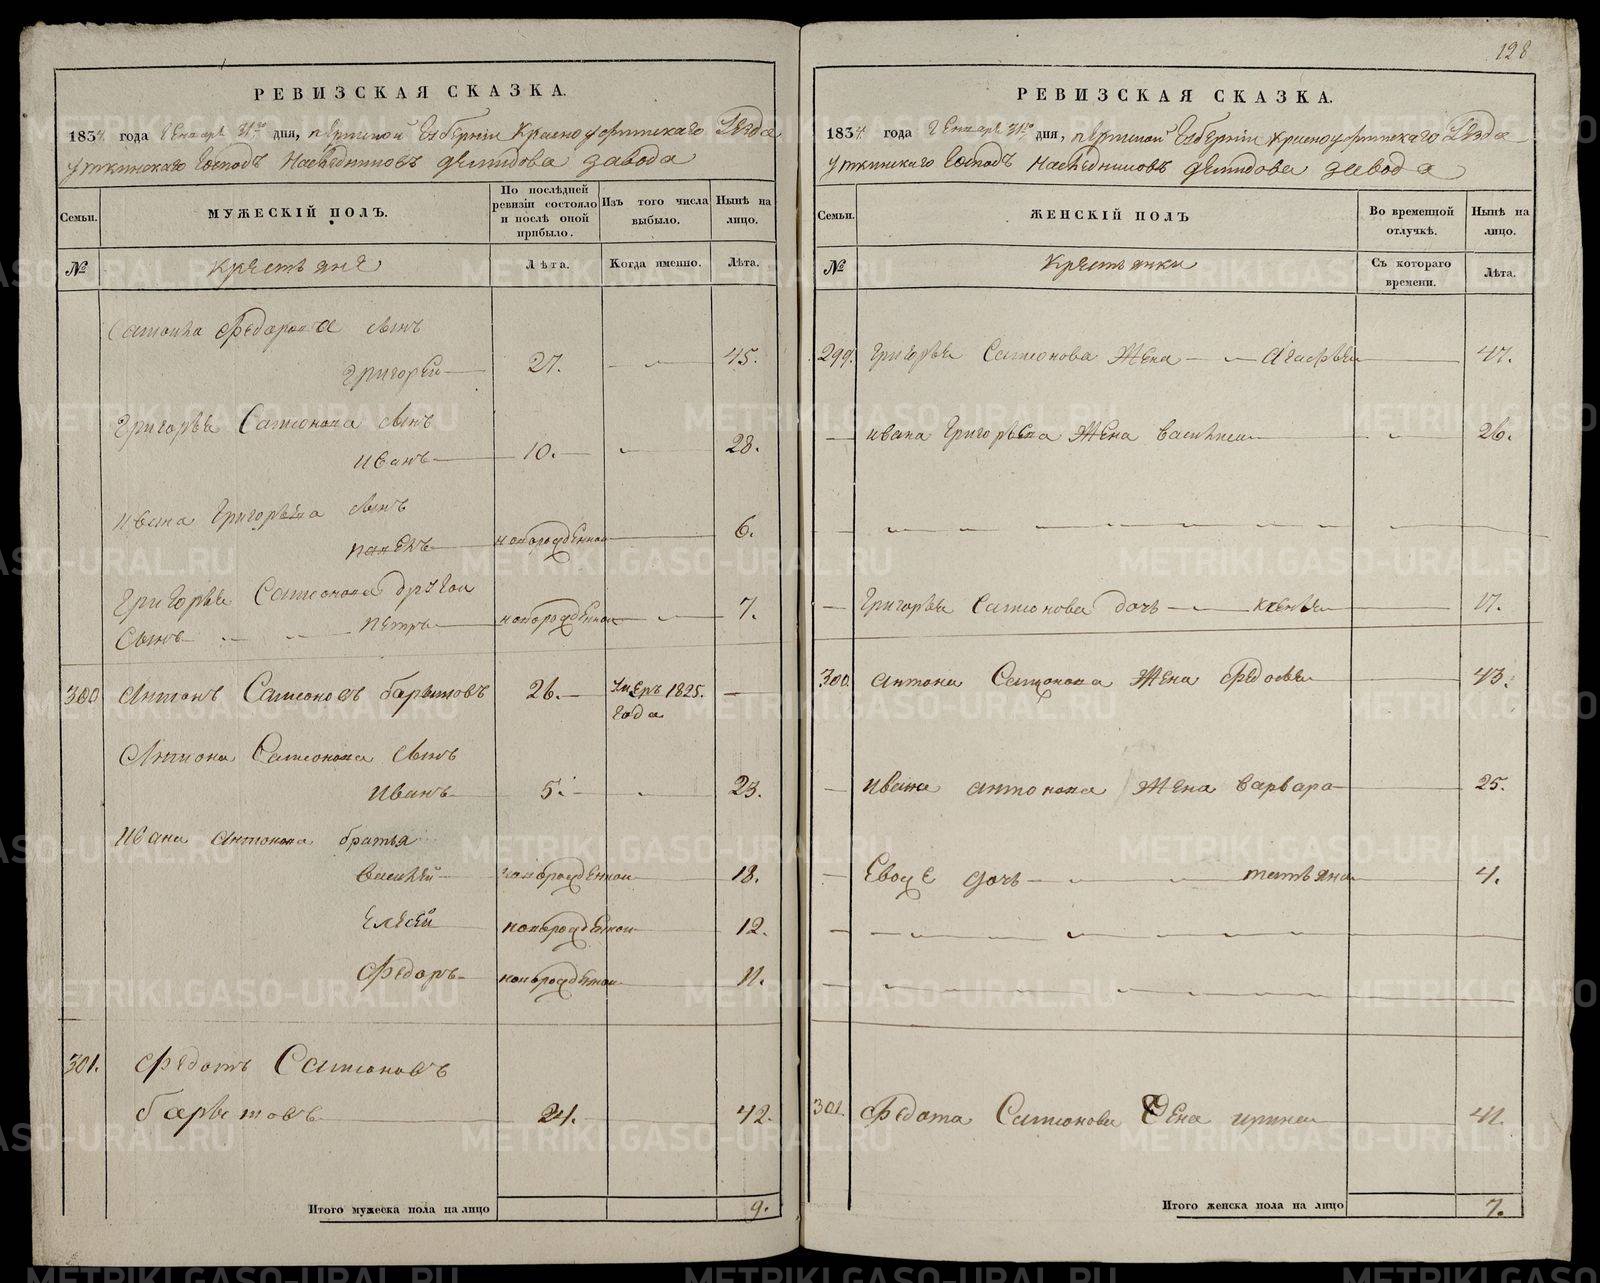 128
РЕВИЗСКАЯ СКАЗКА.
1834 года Генваря 31го дня, Пермской Губерніи Красноуфимскаго Уезда
Уткинскаго Господъ Наследниковъ Демидова завода
Семьи.
МУЖЕСКІЙ ПОЛЪ.
По послѣдней ревизіи состояло и послѣ оной прибыло.
Изъ того числа выбыло.
Нынѣ на лицо.
№
Крестьяне
Лѣта.
Когда именно.
Лѣта.
Самсона Федорова сынъ
Григорей 27. 45.
Григорья Самсонова сынъ
Иванъ 10. 28.
Ивана Григорьева сынъ
Павелъ новорожденной 6.
Григорья Самсонова другой
сынъ Петръ новорожденной 7.
300 Антонъ Самсоновъ 26. Умеръ 1825. года
Антона Самсонова сынъ
Иванъ 5. 23.
Ивана Антонова братья
Василей новорожденной 18.
Елесей новорожденной 12.
Федоръ новорожденной 11.
301. Федотъ Самсоновъ
24. 42.
Итого мужеска пола на лицо 9.
РЕВИЗСКАЯ СКАЗКА.
1834 года Генваря 31го дня, Пермской Губерніи Красноуфимскаго Уезда
Уткинскаго Господъ Наследниковъ Демидова завода
Семьи.
ЖЕНСКІЙ ПОЛЪ
Во временной отлучкѣ.
Нынѣ на лицо.
№
Крестьянки
Съ котораго времени.
Лѣта.
299. Григорья Самсонова жена Агафья 47.
Ивана Григорьева жена Василиса 26.
Григорья Самсонова дочь Ксенья 17.
300. Антона Самсонова жена Федосья 43.
Ивана Антонова жена Варвара 25.
Евоже дочь Татьяна 4.
301. Федота Самсонова жена Ирина 41.
Итого женска пола на лицо 7.
METRIKI.GASO-URAL.RU